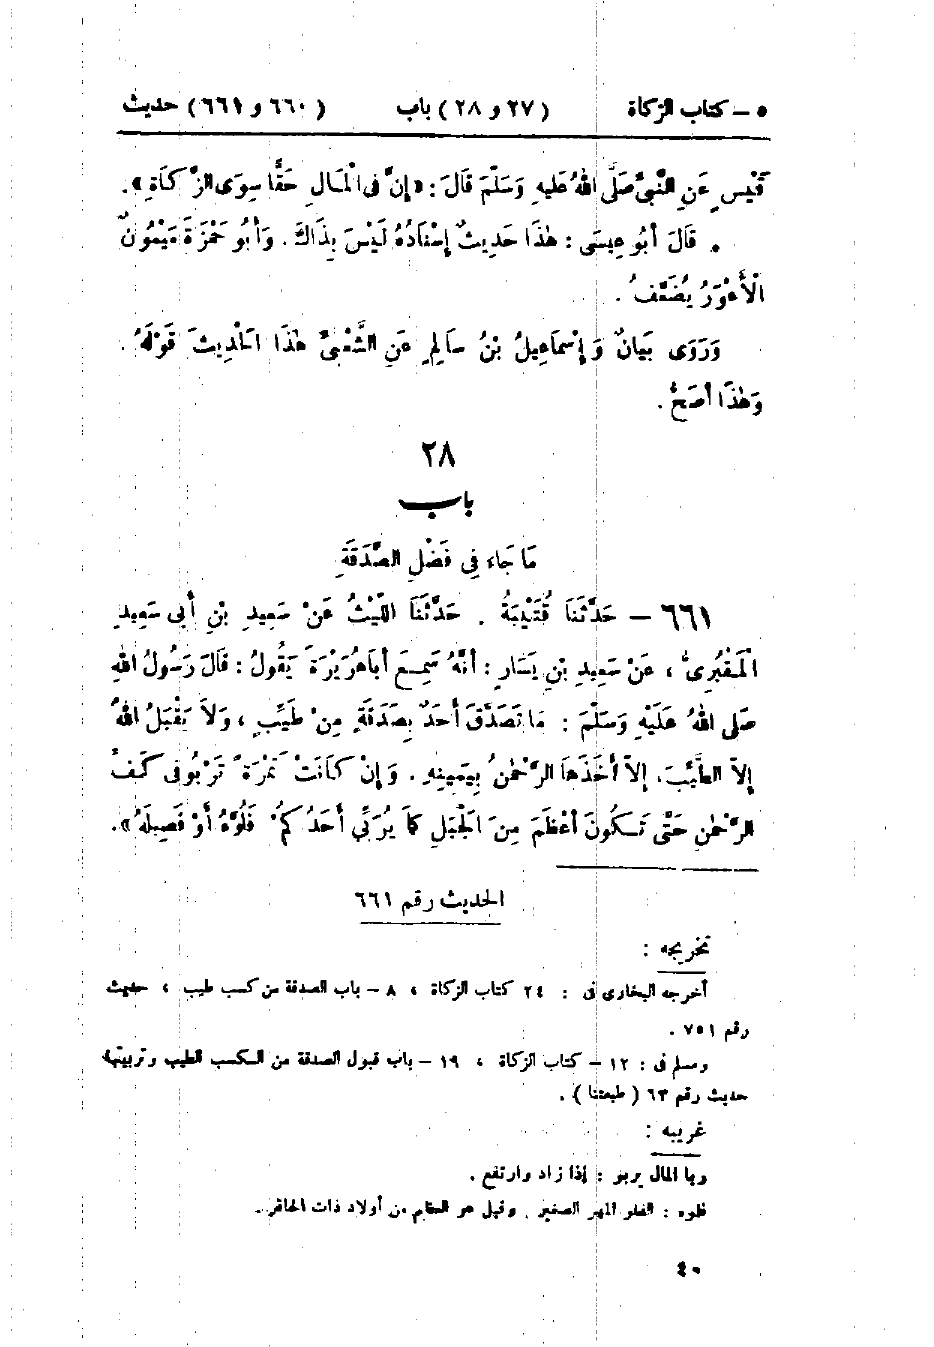 ٥ – كتاب الزكاة (٢٧ و ٢٨) باب (٦٦٠ و ٦٦١) حديث
قَيْسٍ عَنِ النَّبِيِّ صَلَّى اللهُ عَلَيهِ وَسَلَّمَ قَالَ : «إنَّ فِى الْمَالِ حَقًّا سِوَى الزَّكَاةِ».
• قَالَ أَبُو عِيسَى : هٰذَا حَدِيثٌ إسْنَادُهُ لَيْسَ بِذَاكَ . وَأَبُو حَمْزَةَ مَيْمُونٌ
الْأَعْوَرُ يُضَعَّفُ .
وَرَوَى بَيَانٌ وَإِسْمَاعِيلُ بْنُ سَالِمٍ عَنِ الشَّعْبِىِّ هٰذَا الْحَدِيثَ قَوْلَهُ .
وَهٰذَا أَصَحُّ .
٢٨
باب
مَا جَاءَ فِى فَضْلِ الصَّدَقَةِ
٦٦١ – حَدَّثَنَا قُتَيْبَةُ . حَدَّثَنَا اللَّيْثُ عَنْ سَعِيدِ بْنِ أَبِى سَعِيدٍ
الْمَقْبُرِىِّ ، عَنْ سَعِيدِ بْنِ يَسَارٍ : أَنَّهُ سَمِعَ أَبَاهُرَيْرَةَ يَقُولُ : قَالَ رَسُولُ اللهِ
صَلَّى اللهُ عَلَيْهِ وَسَلَّمَ : مَا تَصَدَّقَ أَحَدٌ بِصَدَقَةٍ مِنْ طَيِّبٍ ، وَلاَ يَقْبَلُ اللهُ
إِلاَّ الطَّيِّبَ، إِلاَّ أَخَذَهَا الرَّحْمٰنُ بِيَمِينِهِ . وَإِنْ كَانَتْ تَمْرَةً تَرْبُو فِى كَفِّ
الرَّحْمٰنِ حَتَّى تَكُونَ أَعْظَمَ مِنَ الْجَبَلِ كَمَا يُرَبِّي أَحَدُكُمْ فَلُوَّهُ أَوْ فَصِيلَهُ».
الحديث رقم ٦٦١
تخريجه :
أخرجه البخارى فى : ٢٤ كتاب الزكاة ، ٨ – باب الصدقة من كسب طيب ، حديث
رقم ٧٥١ .
ومسلم فى : ١٢ – كتاب الزكاة ، ١٩ – باب قبول الصدقة من الكسب الطيب وتربيتها
حديث رقم ٦٣ ( طبعتنا ) .
غريبه :
ربا المال يربو : إذا زاد وارتفع .
فلوه : الفلو المهر الصغير . وقيل هو العظيم من أولاد ذات الحافر .
٤٠